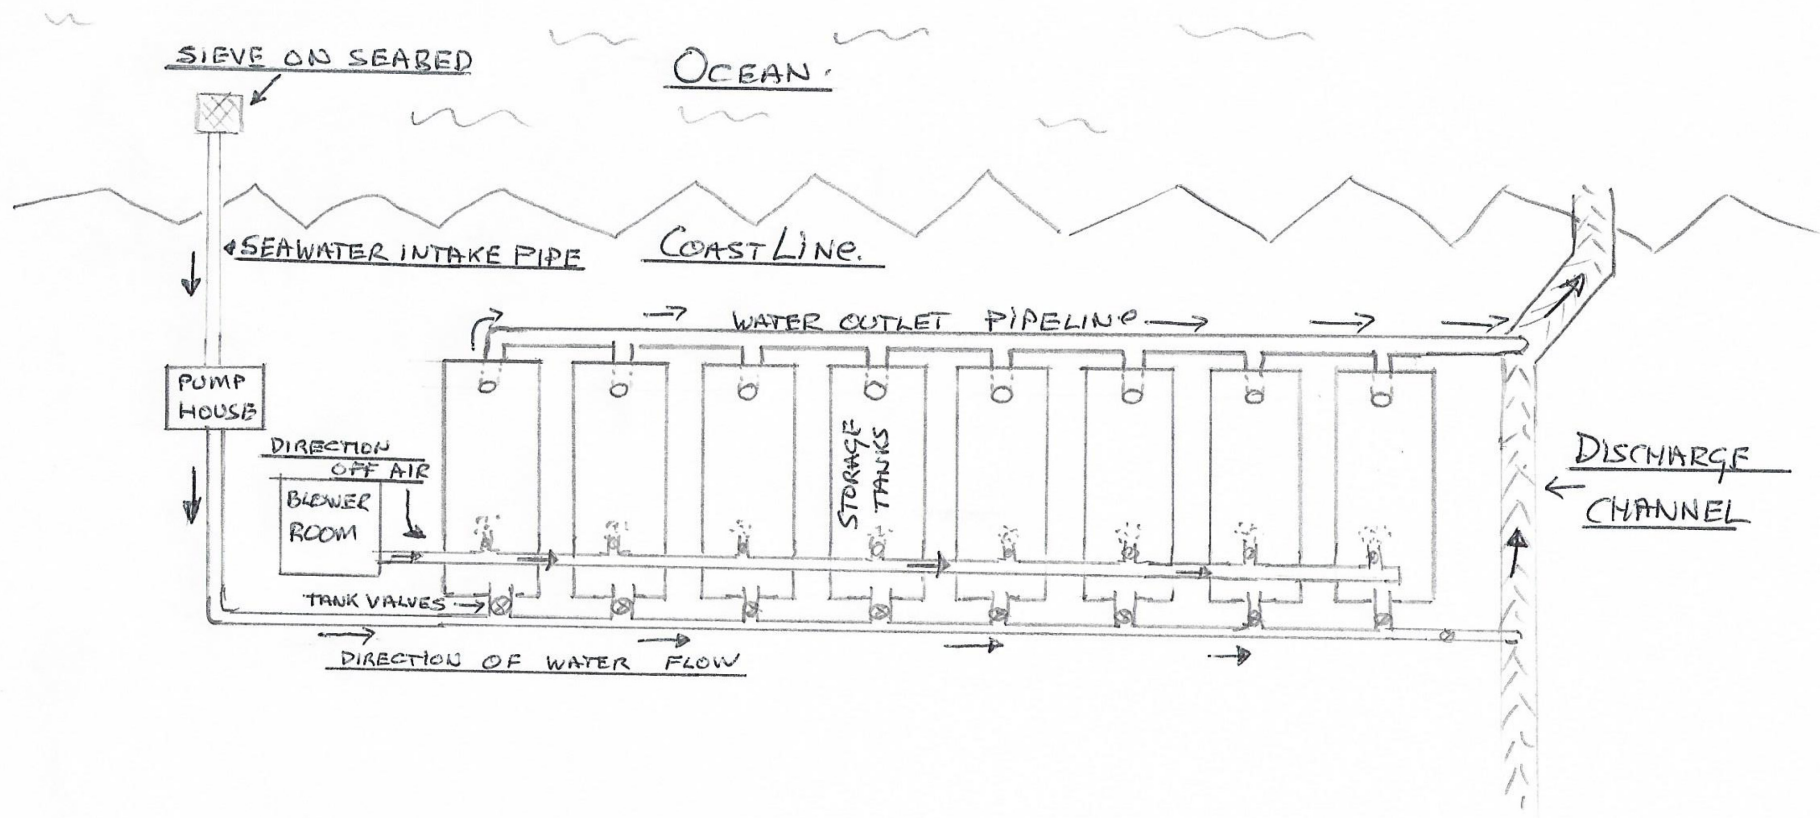 SIEVE ON SEABED
OCEAN.
SEAWATER INTAKE PIPE
COASTLINE.
WATER OUTLET PIPELINE
PUMP
HOUSE
DIRECTION
OFF AIR
BLOWER
ROOM
STORAGE
TANKS
DISCHARGE
CHANNEL
TANK VALVES
DIRECTION OF WATER FLOW